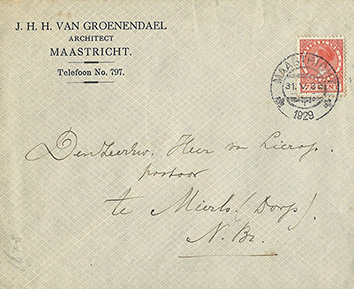 J. H. H. VAN GROENENDAEL
ARCHITECT
MAASTRICHT.
Telefoon No. 797.
MAASTRICHT
31. V.
1929
Den Zeereerw. Heer van Lierop.
pastoor
te Mierlo. (Dorp).
N. Br.